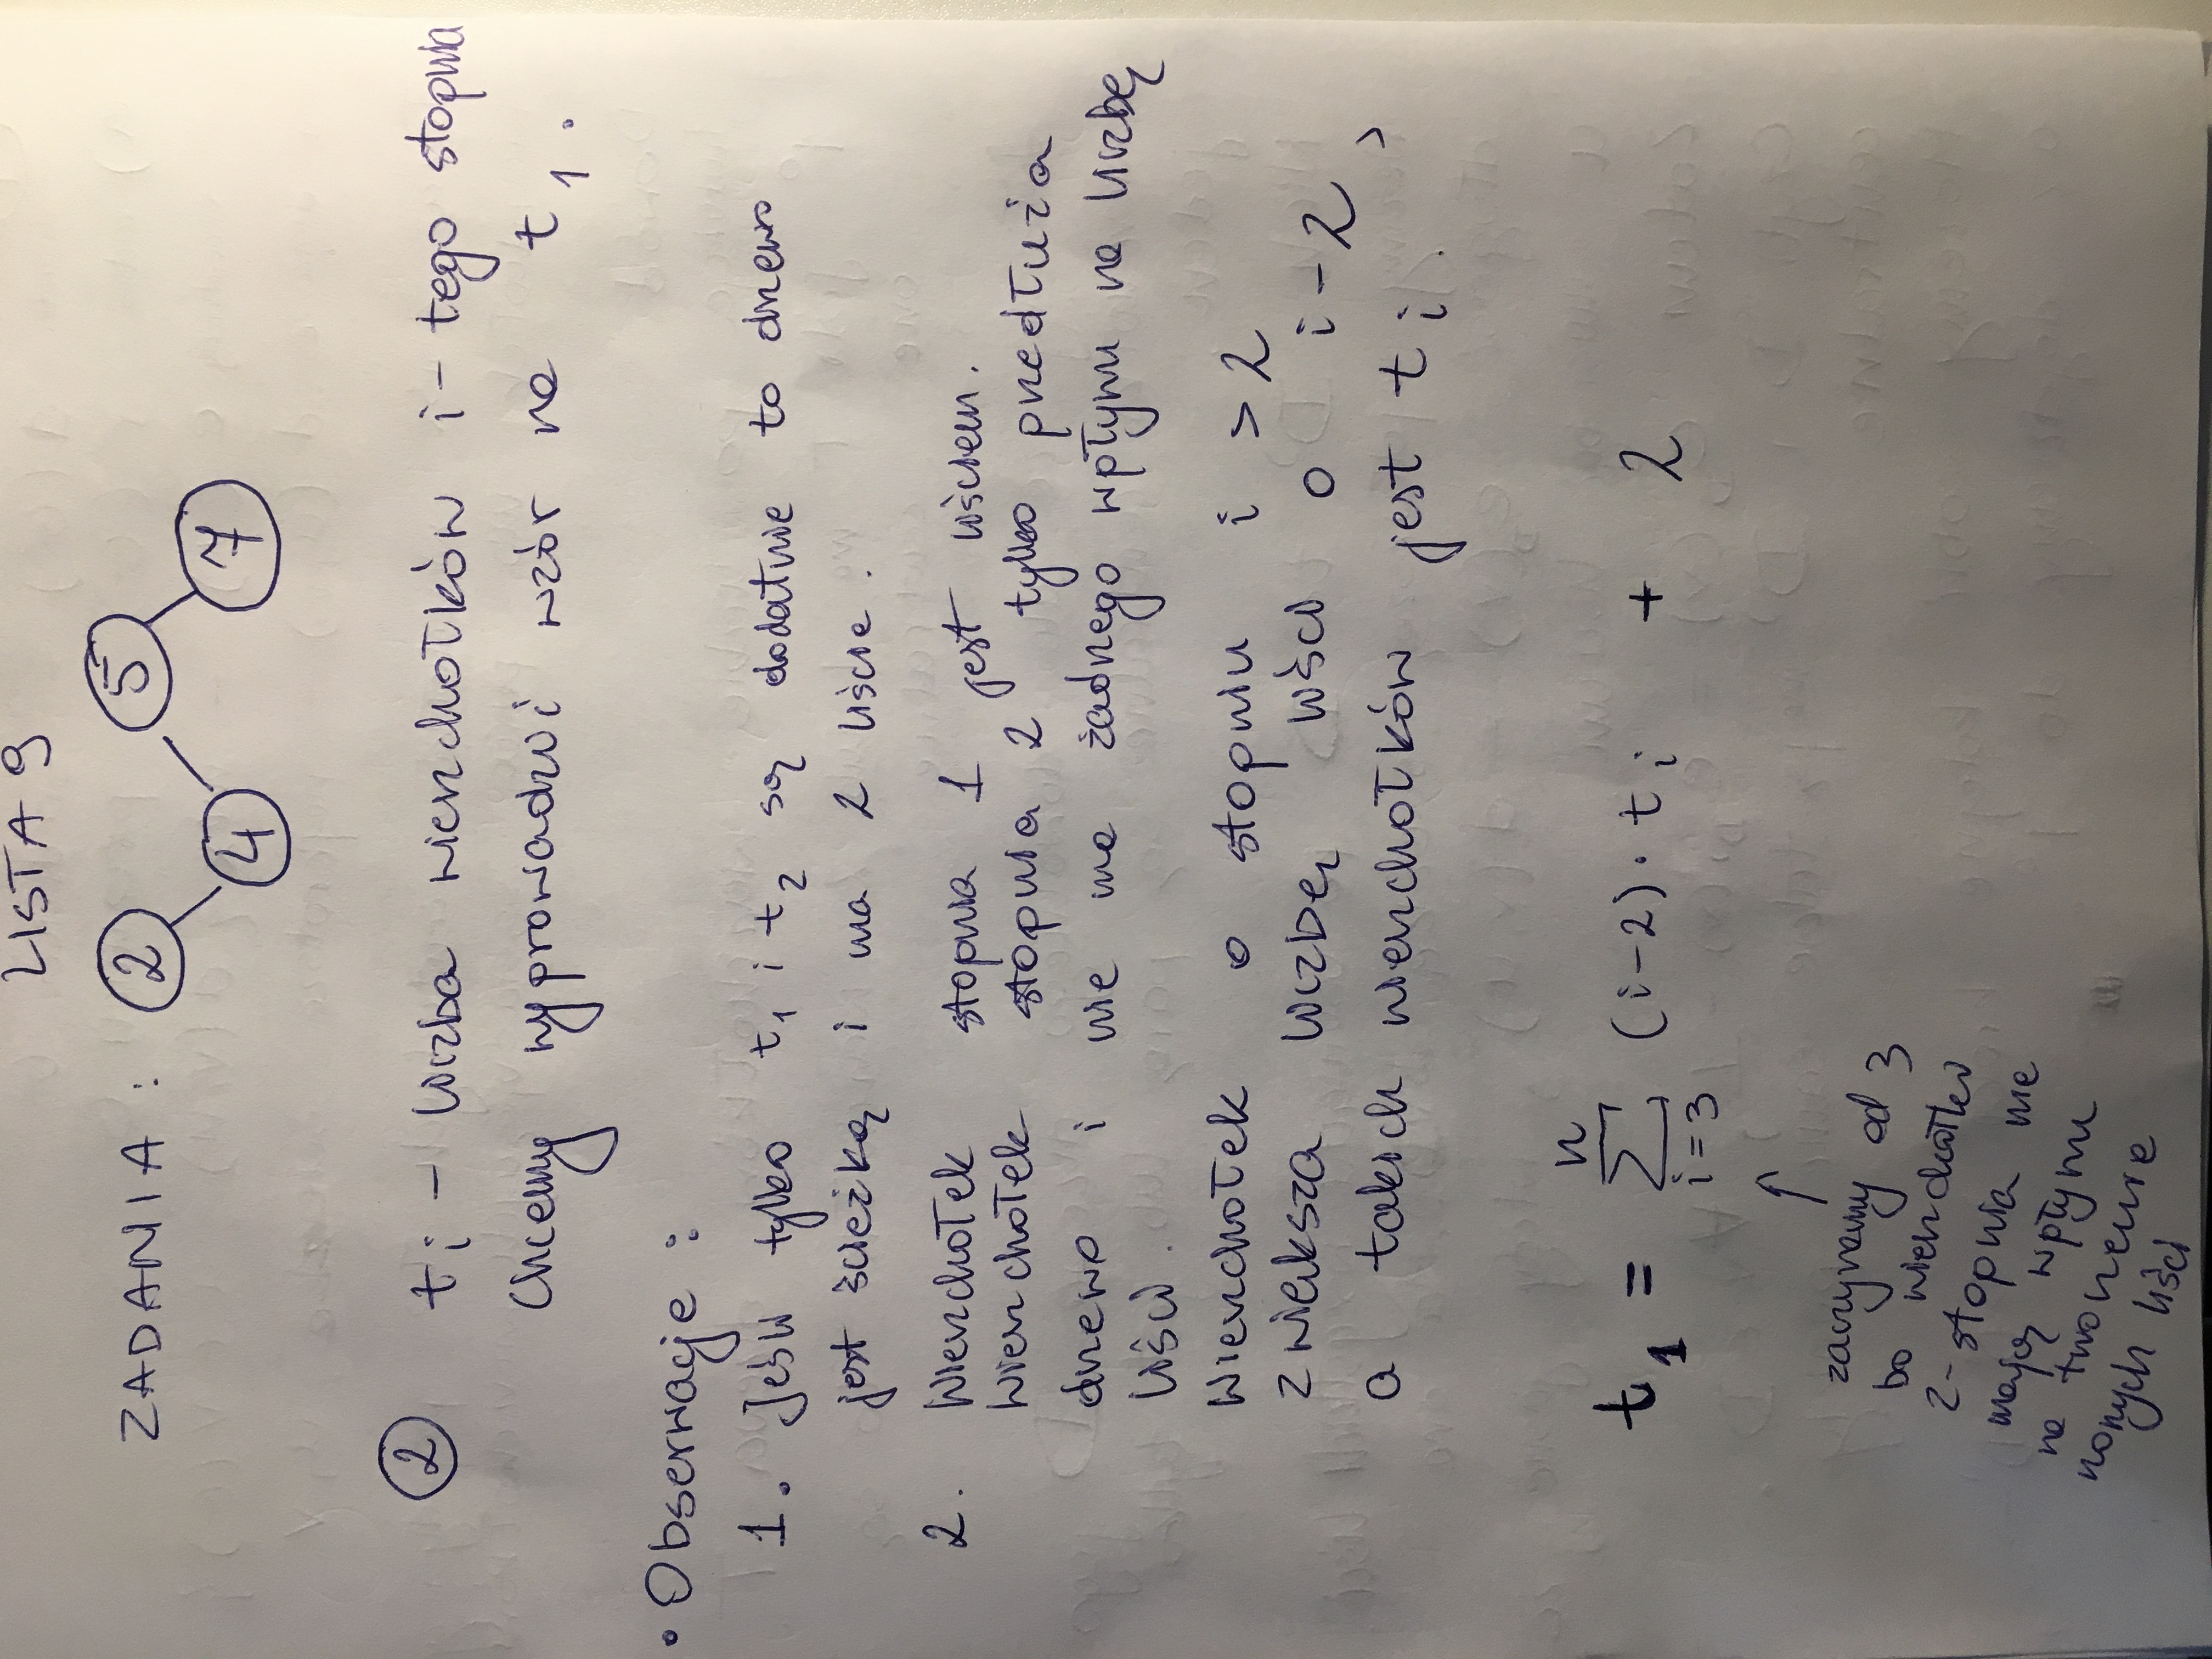 LISTA 9
ZADANIA : 2 5
4 7
2 ti - liczba wierzchołków i - tego stopnia
Chcemy wyprowadzić wzór na t1.
• Obserwacje :
1. Jeśli tylko t1 i t2 są dodatnie to drzewo
jest ścieżką i ma 2 liście.
2. Wierzchołek stopnia 1 jest liściem.
Wierzchołek stopnia 2 tylko przedłuża
drzewo i nie ma żadnego wpływu na liczbę
liści.
Wierzchołek o stopniu i > 2
zwiększa liczbę liści o i - 2,
a takich wierzchołków jest ti.
n
t1 = Σ (i-2) · ti + 2
i = 3
↑
zaczynamy od 3
bo wierzchołki
2-stopnia nie
mają wpływu
na tworzenie
nowych liści